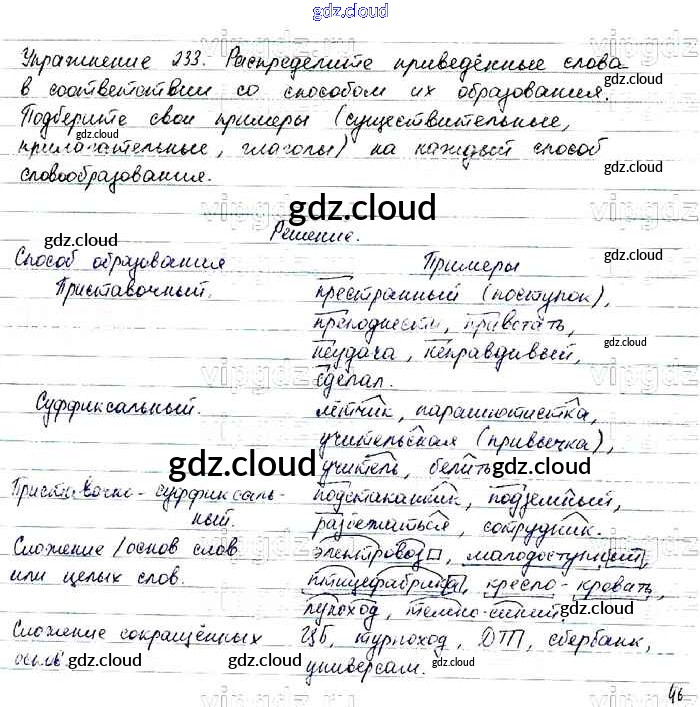 gdz.cloud
Упражнение 233. Распределите приведённые слова
в соответствии со способом их образования.
gdz.cloud
Подберите свои примеры (существительные,
gdz.cloud
прилагательные, глаголы) на каждый способ
словообразования.
gdz.cloud
Решение.
gdz.cloud
Способ образования Примеры
Приставочный. престранный (поступок),
преподнести, привстать,
gdz.cloud
неудача, неправдивый,
сделал.
Суффиксальный. лётчик, парашютистка,
учительская (привычка),
gdz.cloud
учитель, белить.
gdz.cloud
Приставочно-суффиксаль- подстаканник, подземный,
ный. разбежаться, сотрудник.
Сложение/основ слов электровоз, малодоступный,
или целых слов. птицефабрика, кресло-кровать,
луноход, темно-синий.
gdz.cloud
Сложение сокращённых ЦБ, турпоход, ДТП, сбербанк,
основ универсам.
gdz.cloud gdz.cloud gdz.cloud
46
vipgdz.ru